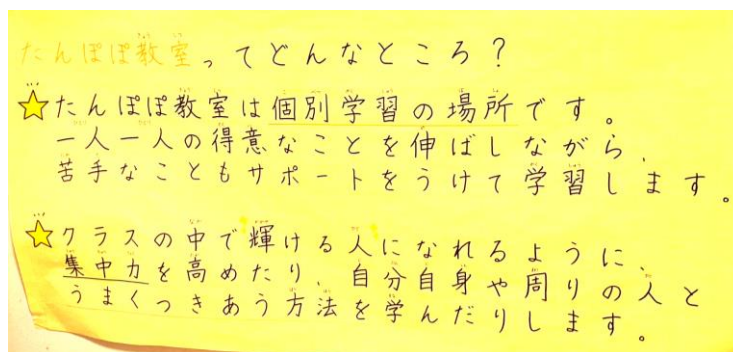 たんぽぽ教室ってどんなところ？
☆たんぽぽ教室は個別学習の場所です。
一人一人の得意なことを伸ばしながら、
苦手なこともサポートをうけて学習します。
☆クラスの中で輝ける人になれるように、
集中力を高めたり、自分自身や周りの人と
うまくつきあう方法を学んだりします。